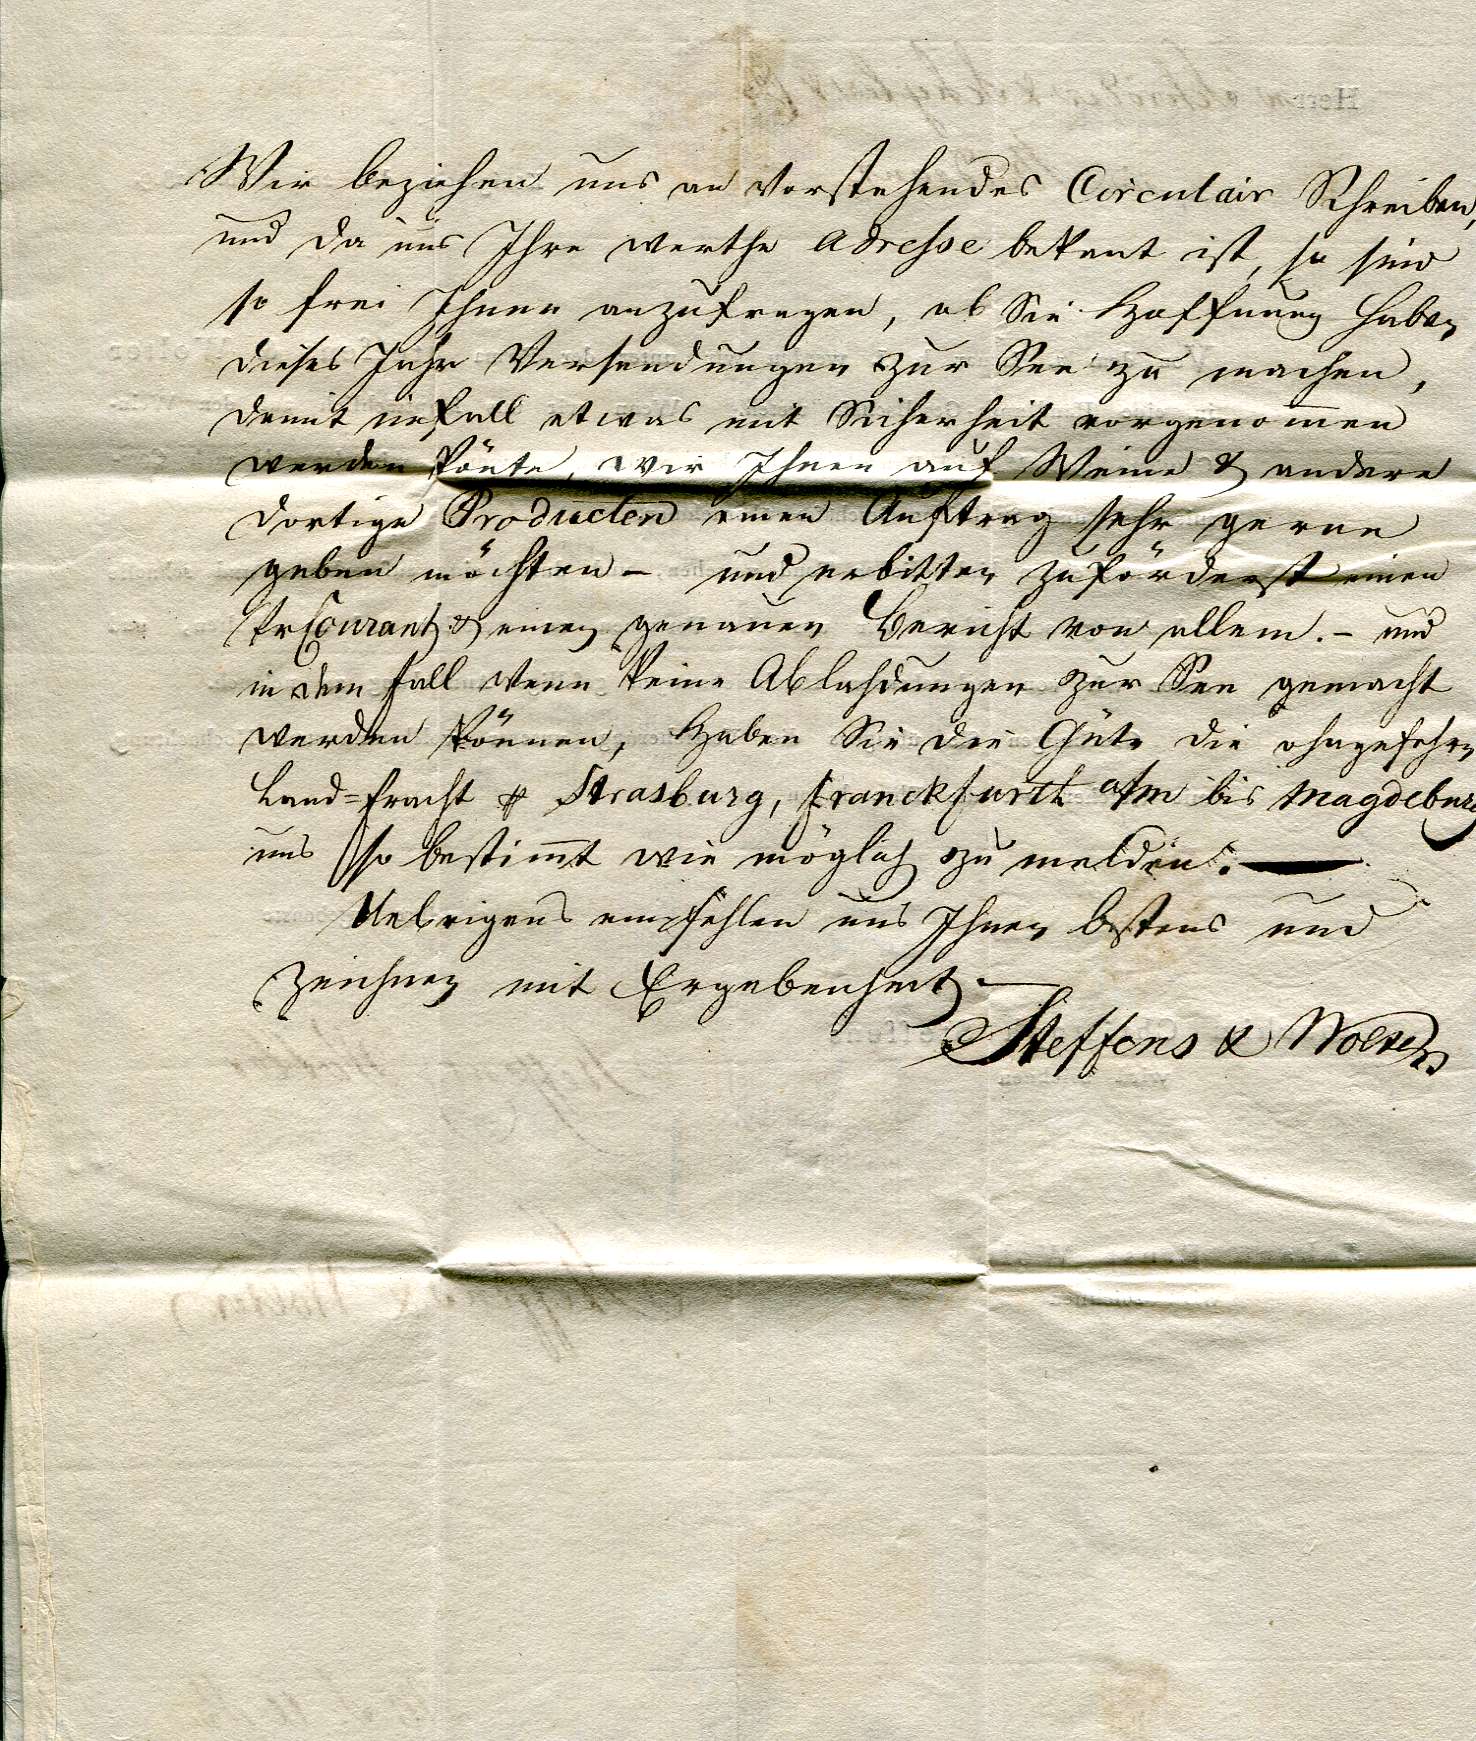 Wir beziehen uns an vorstehendes Circulair Schreiben,
und da uns Ihre werthe Adresse bekant ist, so sind
so frei Ihnen anzufragen, ob Sie Hoffnung haben
dieses Jahr Versendungen zur See zu machen,
damit im fall etwas mit Sicherheit vorgenom̄en
werden könte, wir Ihnen auf Weine & andere
dortige Producten einen Auftrag sehr gerne
geben möchten – und erbitten zuförderst einen
PrCourant & einen genauen Bericht von allem. – und
in dem fall wenn keine Ablahdungen zur See gemacht
werden können, haben Sie die Güte die ohngefehre
Land=fracht Strasburg, franckfurth a/m bis Magdeburg
uns so bestim̄t wie möglich zu melden. —
Uebrigens empfehlen uns Ihnen bestens und
zeichnen mit Ergebenheit —
Steffens & Wolter